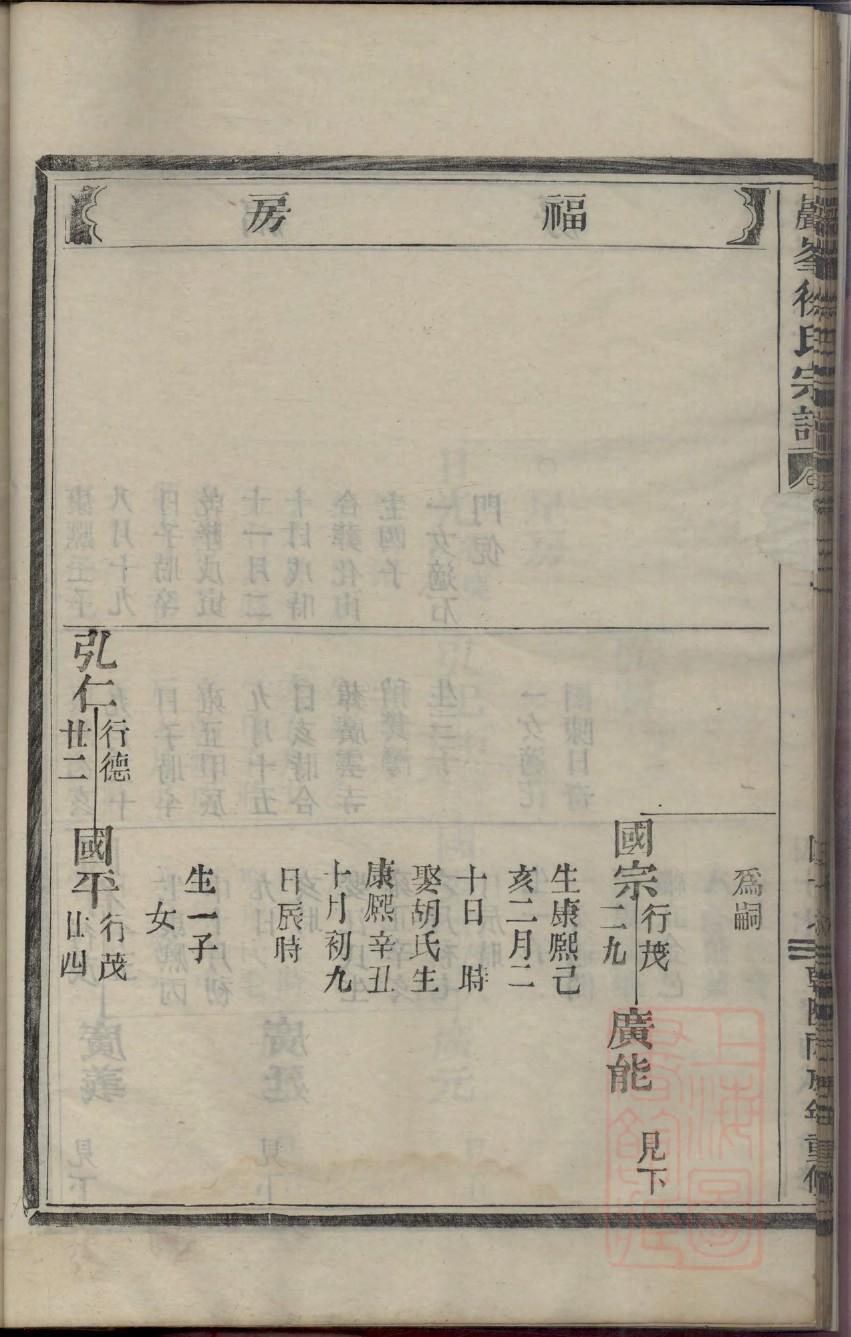 福房
為嗣
國宗 行茂二九
廣能 見下
生康熙己
亥二月二
十日 時
娶胡氏生
康熙辛丑
十月初九
日辰時
生一子
女
弘仁 行德廿二
國平 行茂廿四
徐氏宗譜
重修
上海圖書館藏